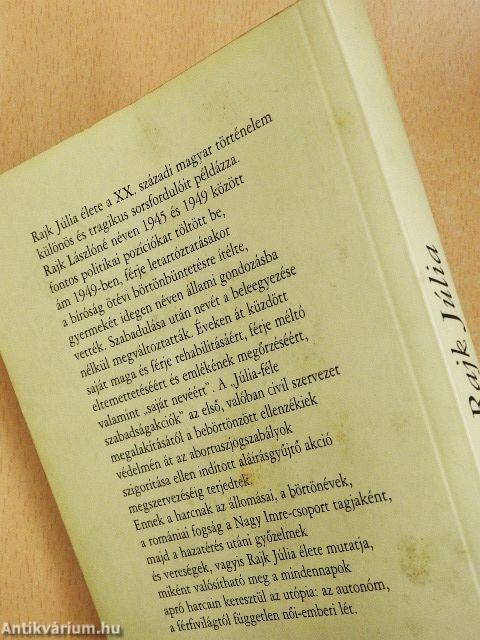 Rajk Júlia élete a XX. századi magyar történelem
különös és tragikus sorsfordulóit példázza.
Rajk Lászlóné néven 1945 és 1949 között
fontos politikai pozíciókat töltött be,
ám 1949-ben, férje letartóztatásakor
a bíróság ötévi börtönbüntetésre ítélte,
gyermekét idegen néven állami gondozásba
vették. Szabadulása után nevét a beleegyezése
nélkül megváltoztatták. Éveken át küzdött
saját maga és férje rehabilitásáért, férje méltó
eltemettetéséért és emlékének megőrzéséért,
valamint „saját nevéért". A „Júlia-féle
szabadságakciók" az első, valóban civil szervezet
megalakításától a bebörtönzött ellenzékiek
védelmén át az abortuszjogszabályok
szigorítása ellen indított aláírásgyűjtő akció
megszervezéséig terjedtek.
Ennek a harcnak az állomásai, a börtönévek,
a romániai fogság a Nagy Imre-csoport tagjaként,
majd a hazatérés utáni győzelmek
és vereségek, vagyis Rajk Júlia élete mutatja,
miként valósítható meg a mindennapok
apró harcain keresztül az utópia: az autonóm,
a férfivilágtól független női-emberi lét.
Rajk Júlia
Antikvárium.hu